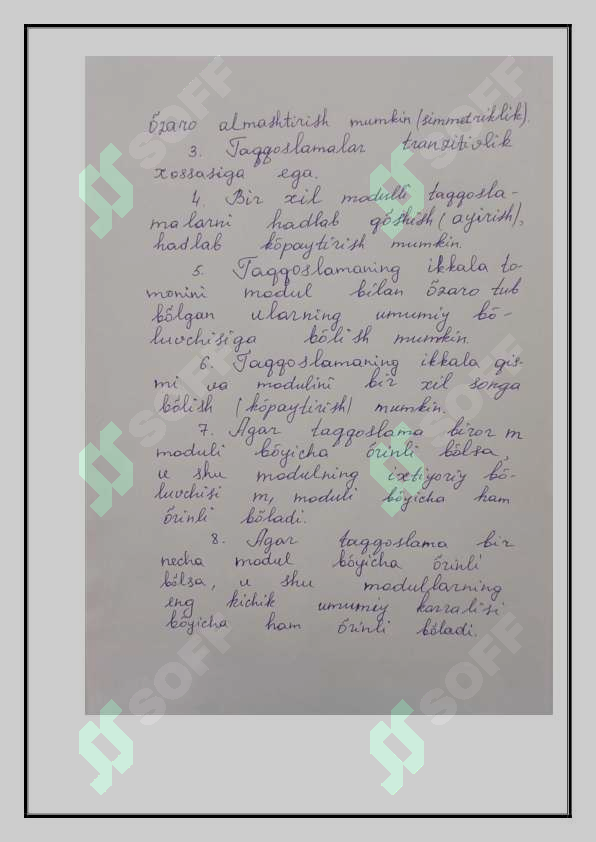 őzaro almashtirish mumkin (simmetriklik).
3. Taqqoslamalar tranzitivlik
xossasiga ega.
4. Bir xil modulli taqqosla-
malarni hadlab qőshish (ayirish),
hadlab kőpaytirish mumkin.
5. Taqqoslamaning ikkala to-
monini modul bilan őzaro tub
bőlgan ularning umumiy bő-
luvchisiga bőlish mumkin.
6. Taqqoslamaning ikkala qis-
mi va modulini bir xil songa
bőlish (kőpaytirish) mumkin.
7. Agar taqqoslama biror m
moduli bőyicha őrinli bőlsa,
u shu modulning ixtiyoriy bő-
luvchisi m, moduli bőyicha ham
őrinli bőladi.
8. Agar taqqoslama bir
necha modul bőyicha őrinli
bőlsa, u shu modullarning
eng kichik umumiy karralisi
bőyicha ham őrinli bőladi.
SOFF
SOFF
SOFF
SOFF
SOFF
SOFF